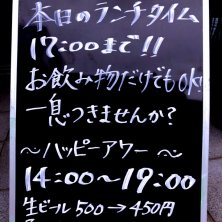 本日のランチタイム
17:00まで!!
お飲み物だけでもOK!
一息つきませんか?
～ハッピーアワー～
14:00～19:00
生ビール 500→450円